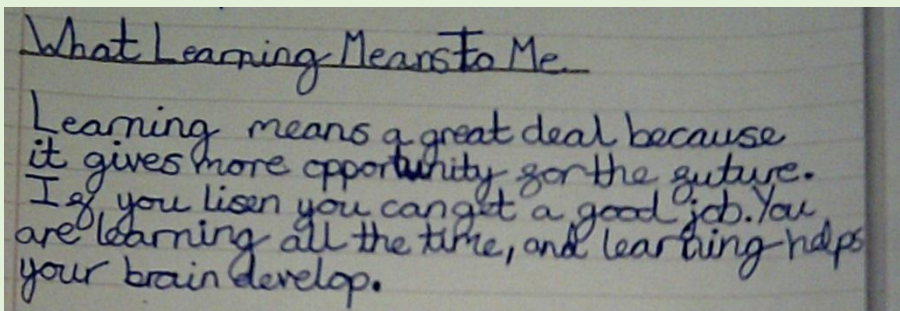 What Learning Means To Me
Learning means a great deal because
it gives more opportunity for the future.
If you lisen you can get a good job. You
are learning all the time, and learning helps
your brain develop.